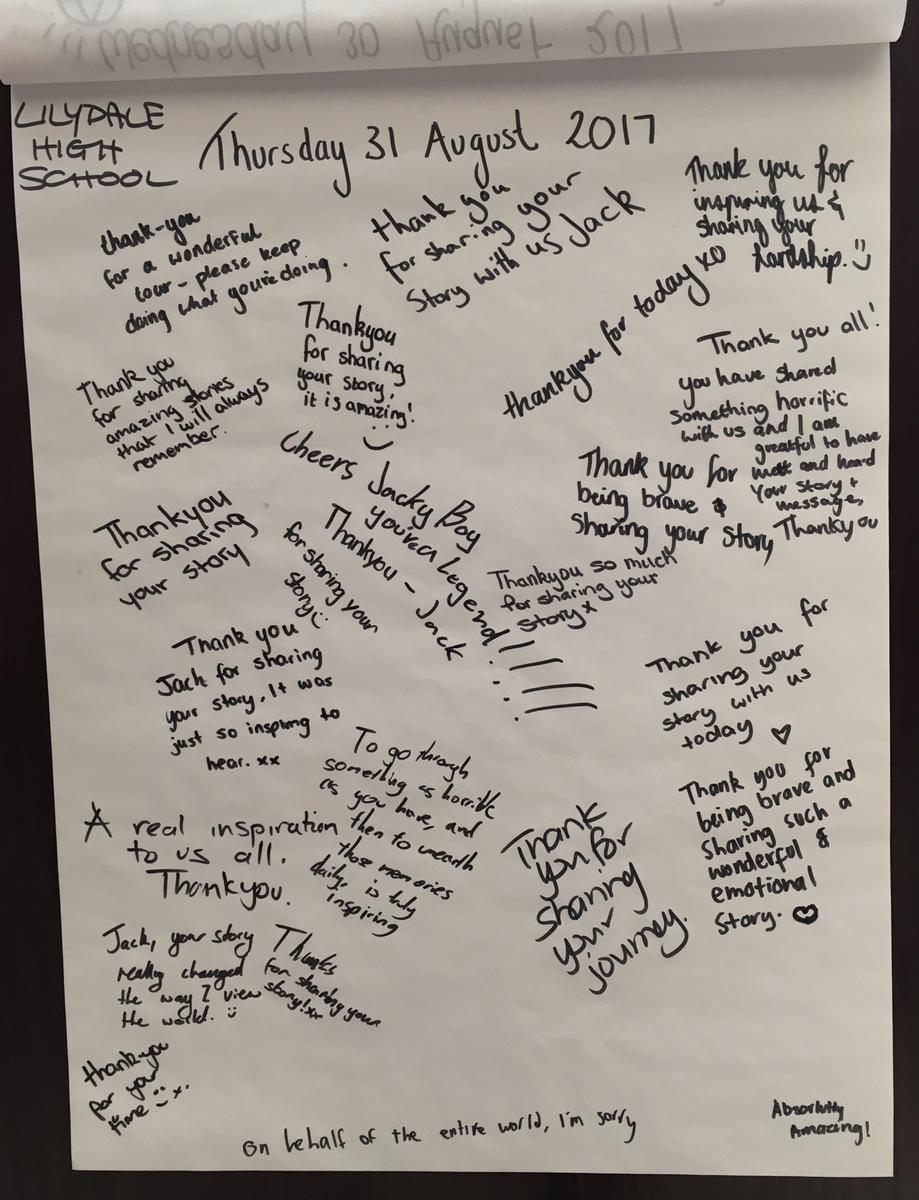 Wednesday 30 August 2017
LILYDALE
HIGH
SCHOOL
Thursday 31 August 2017
thank-you
for a wonderful
tour - please keep
doing what you're doing.
thank you
for sharing your
Story with us Jack
Thank you for
inspiring us &
sharing your
hardship. :)
thankyou for today xo
Thankyou
for sharing
your story,
it is amazing!
Thank you all!
you have shared
something horrific
with us and I am
greatful to have
met and heard
Your story +
message,
Thankyou
Thank you
for sharing
amazing stories
that I will always
remember.
Cheers Jacky Boy
you're a Legend!!!!
Thank you for
being brave &
Sharing your Story
Thankyou
for sharing
your story
Thankyou - Jack
for sharing your
story :)
Thankyou so much
for sharing your
story x
Thank you
Jack for sharing
your story. It was
just so inspiring to
hear. xx
Thank you for
sharing your
story with us
today ♡
To go through
something as horrible
as you have, and
then to unearth
those memories
daily, is truly
inspiring
A real inspiration
to us all.
Thankyou.
Thank
you for
Sharing
your
journey.
Thank you for
being brave and
Sharing such a
wonderful &
emotional
Story. ♡
Jack, your story
really changed
the way I view
the world. :)
Thanks
for sharing your
story! xx
thank-you
for your
time :) x.
On behalf of the entire world, I'm sorry
Absolutely
Amazing!